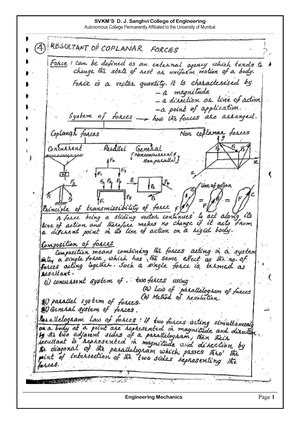 SVKM'S D. J. Sanghvi College of Engineering
Autonomous College Permanently Affiliated to the University of Mumbai
① RESULTANT OF COPLANAR FORCES
Force : can be defined as an external agency which tends to
change the state of rest or uniform motion of a body.
Force is a vector quantity. It is characterised by
- a magnitude
- a direction or line of action
- a point of application.
System of forces → how the forces are arranged.
Coplanar forces
Non coplanar forces
Concurrent
Parallel
General
(Nonconcurrent
Nonparallel)
Line of action
Principle of transmissibility of force
A force being a sliding vector continues to act along its
line of action and therefore makes no change if it acts from
a different point in its line of action on a rigid body.
Composition of forces
Composition means combining the forces acting in a system
into a single force, which has the same effect as the no. of
forces acting together. Such a single force is termed as
resultant.
i) concurrent system of. two forces using
(a) Law of parallelogram of forces
(b) Method of resolution.
ii) parallel system of forces.
iii) General system of forces.
Parallelogram Law of forces : If two forces acting simultaneously
on a body at a point are represented in magnitude and direction
by the two adjacent sides of a parallelogram, then their
resultant is represented in magnitude and direction by
the diagonal of the parallelogram which passes thro' the
point of intersection of the two sides representing the
forces.
Engineering Mechanics
Page 1